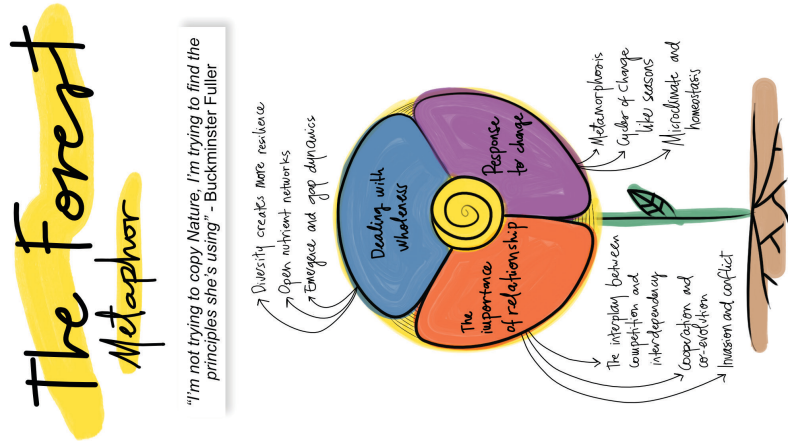 The Forest
Metaphor
"I'm not trying to copy Nature, I'm trying to find the
principles she's using" - Buckminster Fuller
Diversity creates more resilience
Open nutrient networks
Emergence and gap dynamics
Dealing with
wholeness
Response
to change
The
importance
of relationship
Metamorphosis
Cycles of Change
like seasons
Microclimate and
homeostasis
The interplay between
competition and
interdependency
Cooperation and
co-evolution
Invasion and conflict